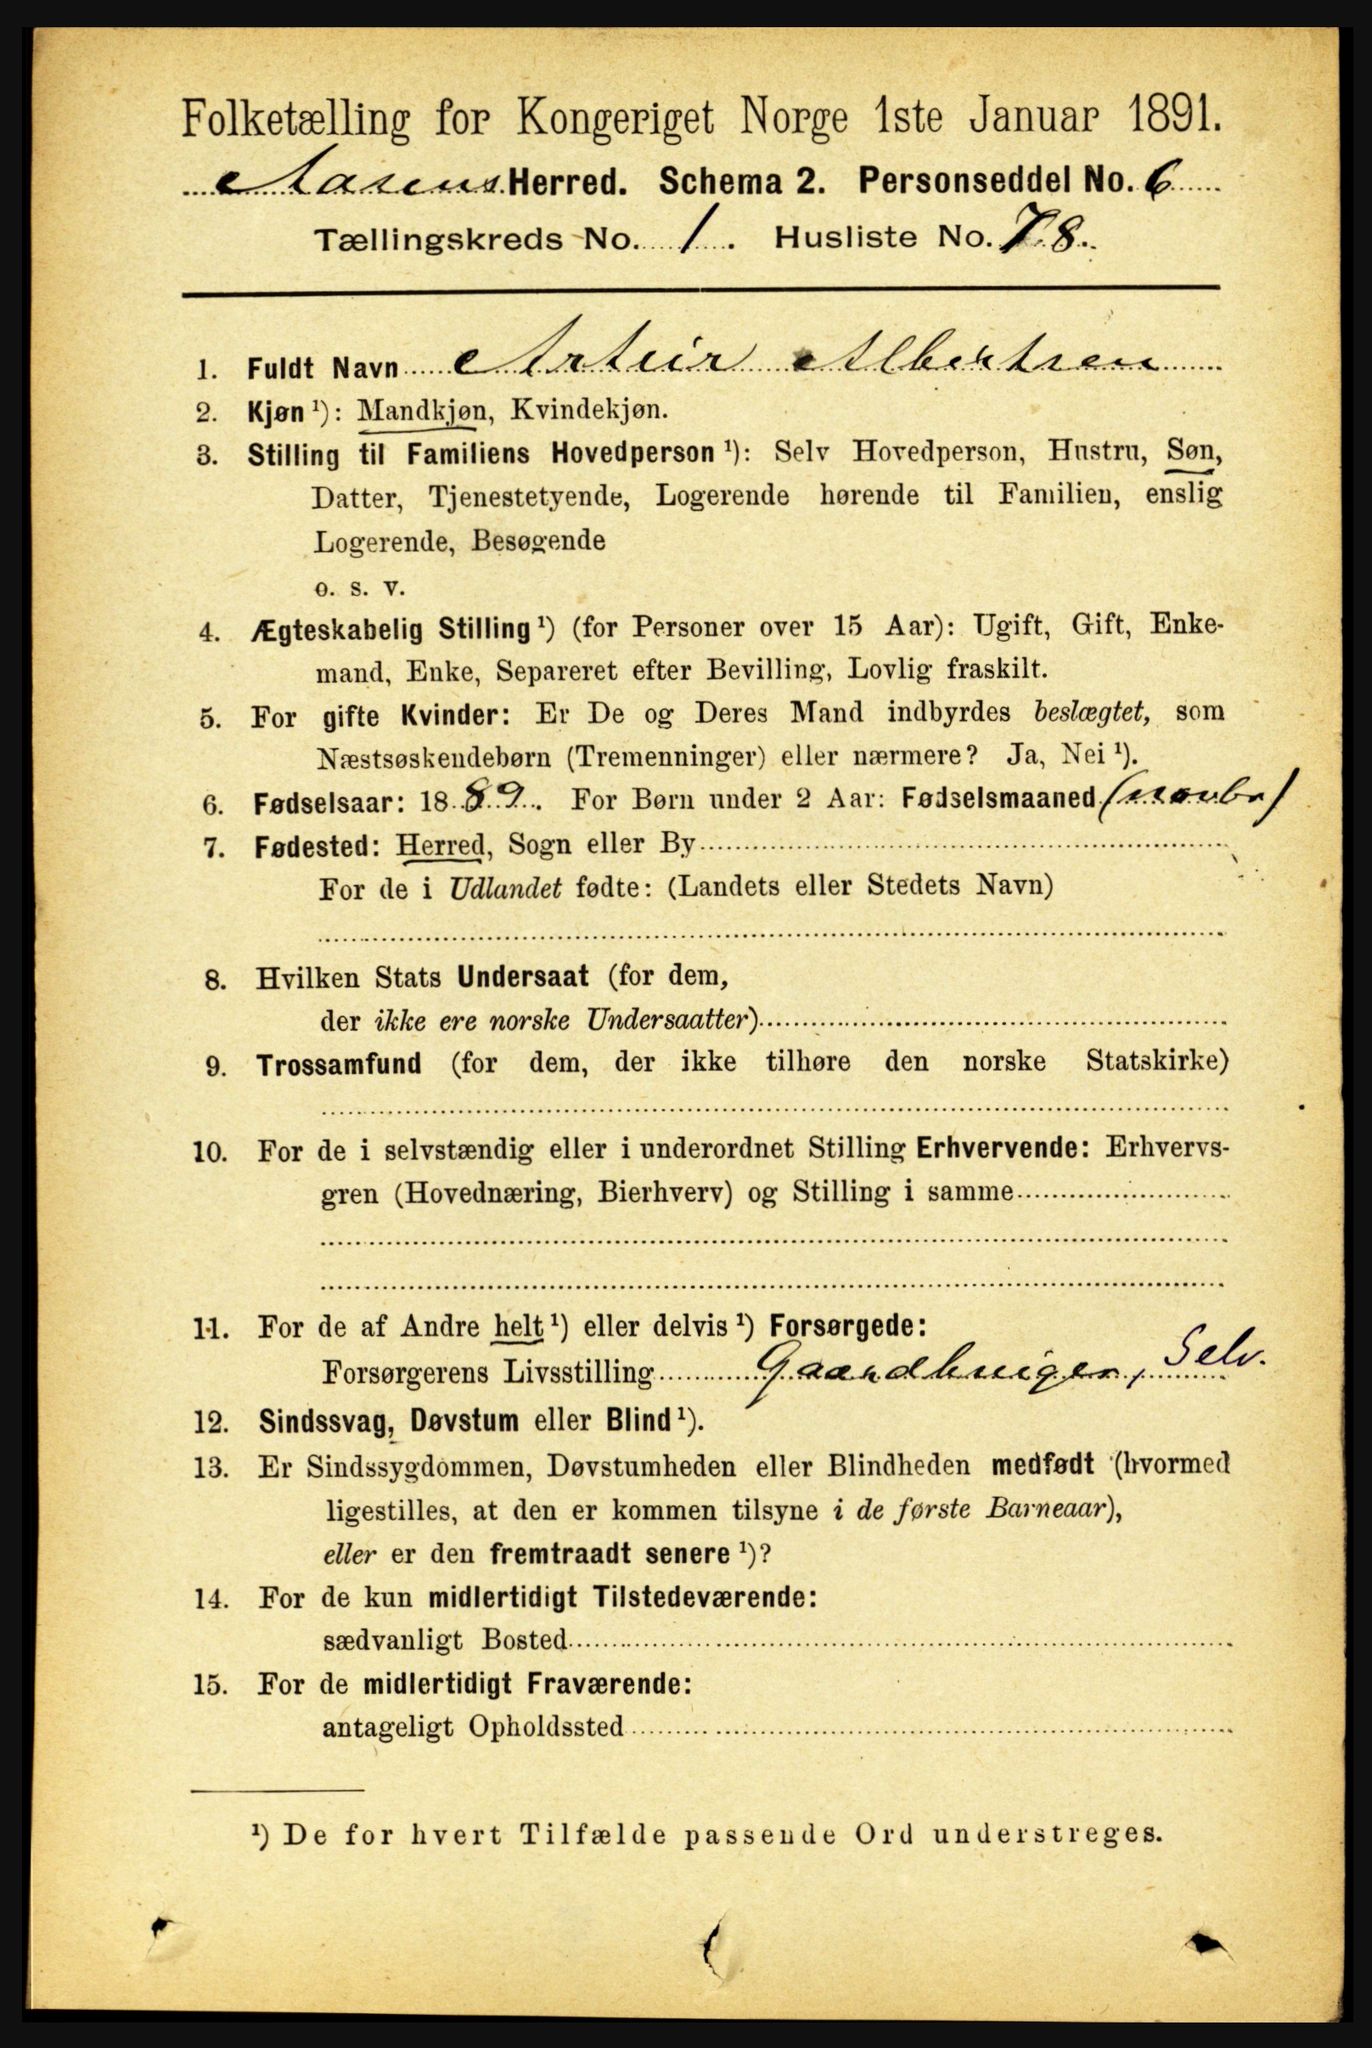 Folketælling for Kongeriget Norge 1ste Januar 1891.
Aasens Herred. Schema 2. Personseddel No. 6
Tællingskreds No. 1. Husliste No. 78.
1. Fuldt Navn Artur Albertsen
2. Kjøn ¹): Mandkjøn, Kvindekjøn.
3. Stilling til Familiens Hovedperson ¹): Selv Hovedperson, Hustru, Søn,
Datter, Tjenestetyende, Logerende hørende til Familien, enslig
Logerende, Besøgende
o. s. v.
4. Ægteskabelig Stilling ¹) (for Personer over 15 Aar): Ugift, Gift, Enke-
mand, Enke, Separeret efter Bevilling, Lovlig fraskilt.
5. For gifte Kvinder: Er De og Deres Mand indbyrdes beslægtet, som
Næstsøskendebørn (Tremenninger) eller nærmere? Ja, Nei ¹).
6. Fødselsaar: 1889. For Børn under 2 Aar: Fødselsmaaned (novbr)
7. Fødested: Herred, Sogn eller By
For de i Udlandet fødte: (Landets eller Stedets Navn)
8. Hvilken Stats Undersaat (for dem,
der ikke ere norske Undersaatter)
9. Trossamfund (for dem, der ikke tilhøre den norske Statskirke)
10. For de i selvstændig eller i underordnet Stilling Erhvervende: Erhvervs-
gren (Hovednæring, Bierhverv) og Stilling i samme
11. For de af Andre helt ¹) eller delvis ¹) Forsørgede:
Forsørgerens Livsstilling Gaardbruger, Selv.
12. Sindssvag, Døvstum eller Blind ¹).
13. Er Sindssygdommen, Døvstumheden eller Blindheden medfødt (hvormed
ligestilles, at den er kommen tilsyne i de første Barneaar),
eller er den fremtraadt senere ¹)?
14. For de kun midlertidigt Tilstedeværende:
sædvanligt Bosted
15. For de midlertidigt Fraværende:
antageligt Opholdssted
¹) De for hvert Tilfælde passende Ord understreges.